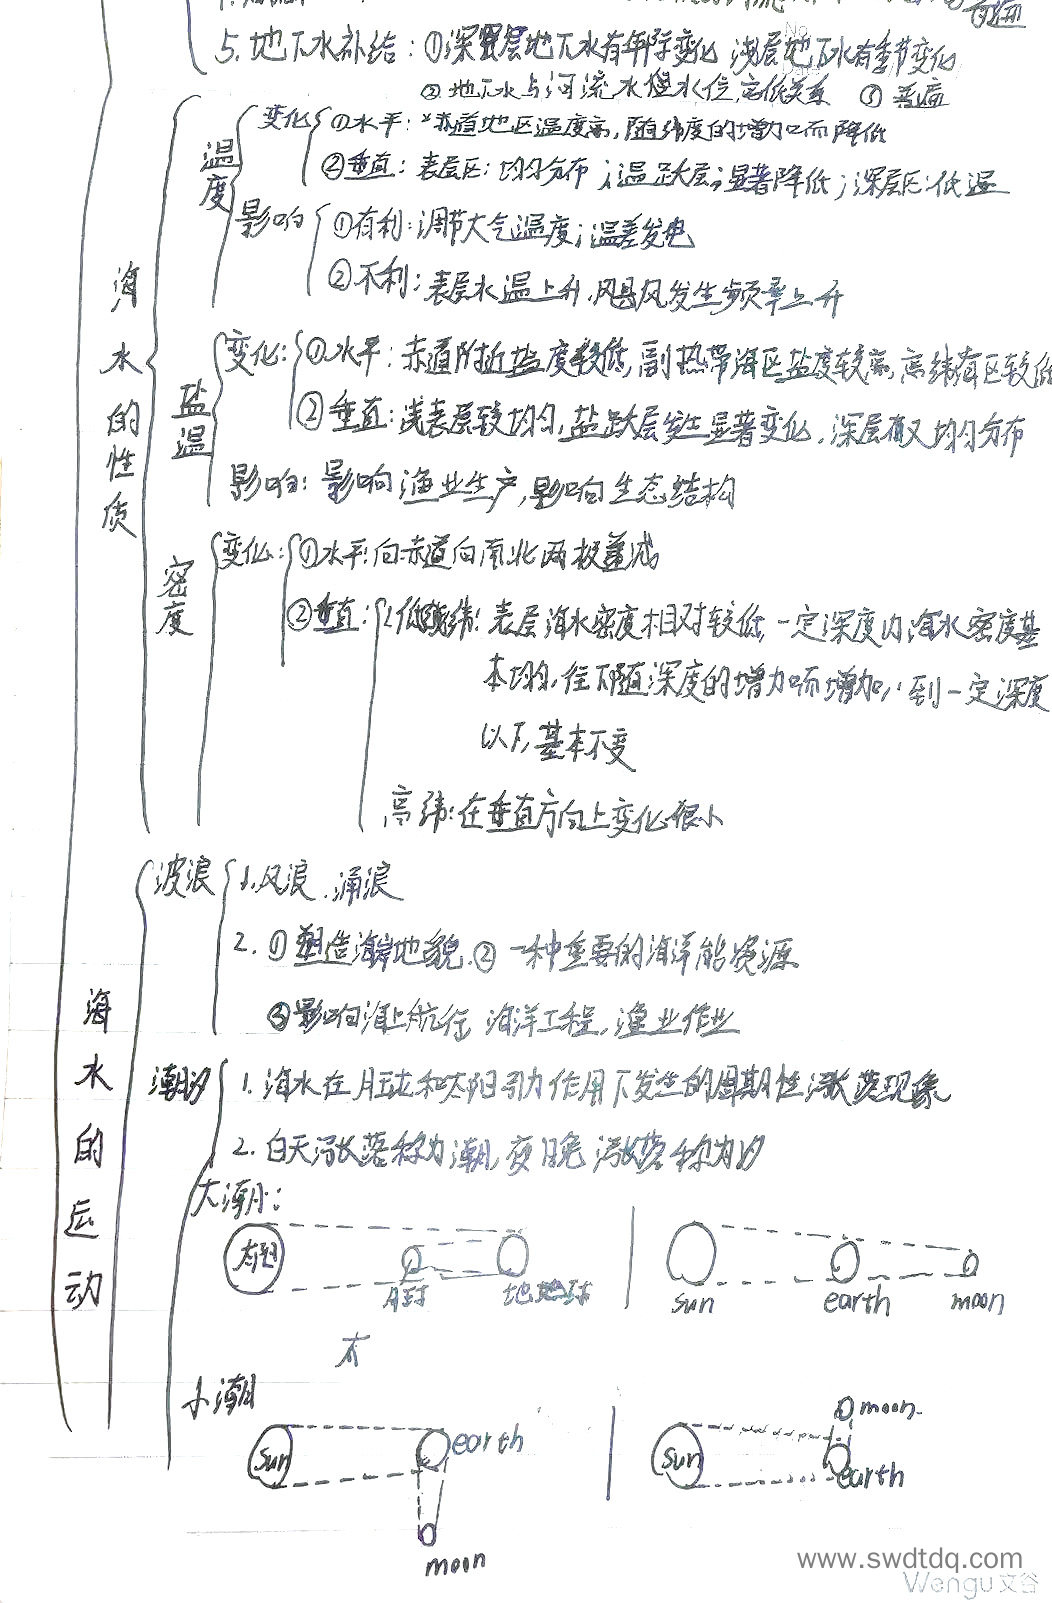 5.地下水补给：①深层地下水有年际变化 浅层地下水有季节变化
②地下水与河流水位高低关系 ③
海水的性质
温度
变化
①水平：赤道地区温度高，随纬度的增加而降低
②垂直：表层区：均匀分布；温跃层：显著降低；深层区：低温
影响
①有利：调节大气温度；温差发电
②不利：表层水温上升，风暴风发生频率上升
盐温
变化：
①水平：赤道附近盐度较低，副热带海区盐度较高，高纬海区较低
②垂直：浅表层较均匀，盐跃层发生显著变化，深层又均匀分布
影响：影响渔业生产，影响生态结构
密度
变化：
①水平：由赤道向南北两极递减
②垂直：
低纬：表层海水密度相对较低，一定深度内，海水密度基
本均匀，往下随深度的增加而增加，到一定深度
以下，基本不变
高纬：在垂直方向上变化很小
海水的运动
波浪
1.风浪、涌浪
2.①塑造海岸地貌 ②一种重要的海洋能资源
③影响海上航行 海洋工程，渔业作业
潮汐
1.海水在月球和太阳引力作用下发生的周期性涨落现象
2.白天涨落称为潮，夜晚涨落称为汐
大潮：
太阳 月球 地球
sun earth moon
太
小潮
sun earth moon
sun earth moon
www.swdtdq.com
Wengu 文谷